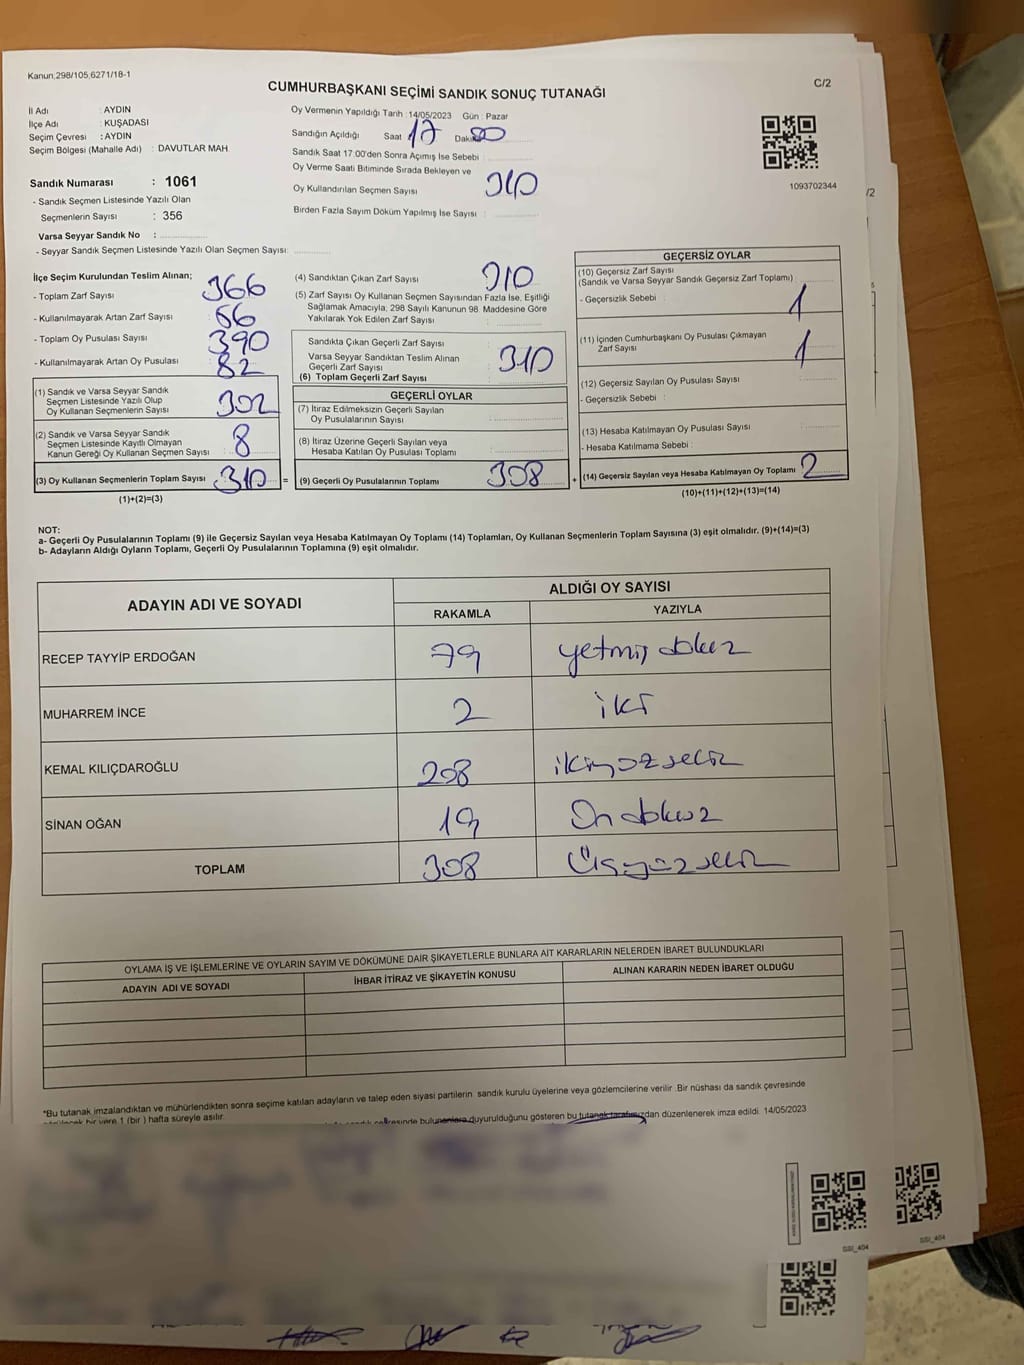 Kanun;298/105,6271/18-1
C/2
CUMHURBAŞKANI SEÇİMİ SANDIK SONUÇ TUTANAĞI
İl Adı : AYDIN
İlçe Adı : KUŞADASI
Seçim Çevresi : AYDIN
Seçim Bölgesi (Mahalle Adı) : DAVUTLAR MAH.
Sandık Numarası : 1061
- Sandık Seçmen Listesinde Yazılı Olan
Seçmenlerin Sayısı : 356
Varsa Seyyar Sandık No :
- Seyyar Sandık Seçmen Listesinde Yazılı Olan Seçmen Sayısı:
Oy Vermenin Yapıldığı Tarih :14/05/2023 Gün : Pazar
Sandığın Açıldığı Saat 17 Dakika 00
Sandık Saat 17:00'den Sonra Açımış İse Sebebi :
Oy Verme Saati Bitiminde Sırada Bekleyen ve
Oy Kullandırılan Seçmen Sayısı 310
Birden Fazla Sayım Döküm Yapılmış İse Sayısı :
1093702344
/2
İlçe Seçim Kurulundan Teslim Alınan;
- Toplam Zarf Sayısı 366
- Kullanılmayarak Artan Zarf Sayısı : 56
- Toplam Oy Pusulası Sayısı 390
- Kullanılmayarak Artan Oy Pusulası : 82
(1) Sandık ve Varsa Seyyar Sandık
Seçmen Listesinde Yazılı Olup
Oy Kullanan Seçmenlerin Sayısı 302
(2) Sandık ve Varsa Seyyar Sandık
Seçmen Listesinde Kayıtlı Olmayan
Kanun Gereği Oy Kullanan Seçmen Sayısı : 8
(3) Oy Kullanan Seçmenlerin Toplam Sayısı 310 =
(1)+(2)=(3)
(4) Sandıktan Çıkan Zarf Sayısı 310
(5) Zarf Sayısı Oy Kullanan Seçmen Sayısından Fazla İse, Eşitliği
Sağlamak Amacıyla; 298 Sayılı Kanunun 98. Maddesine Göre
Yakılarak Yok Edilen Zarf Sayısı :
Sandıkta Çıkan Geçerli Zarf Sayısı :
Varsa Seyyar Sandıktan Teslim Alınan
Geçerli Zarf Sayısı
(6) Toplam Geçerli Zarf Sayısı : 310
GEÇERLİ OYLAR
(7) İtiraz Edilmeksizin Geçerli Sayılan
Oy Pusulalarının Sayısı :
(8) İtiraz Üzerine Geçerli Sayılan veya
Hesaba Katılan Oy Pusulası Toplamı :
(9) Geçerli Oy Pusulalarının Toplamı : 308 +
GEÇERSİZ OYLAR
(10) Geçersiz Zarf Sayısı
(Sandık ve Varsa Seyyar Sandık Geçersiz Zarf Toplamı)
- Geçersizlik Sebebi : 1
(11) İçinden Cumhurbaşkanı Oy Pusulası Çıkmayan
Zarf Sayısı 1
(12) Geçersiz Sayılan Oy Pusulası Sayısı :
- Geçersizlik Sebebi :
(13) Hesaba Katılmayan Oy Pusulası Sayısı :
- Hesaba Katılmama Sebebi :
(14) Geçersiz Sayılan veya Hesaba Katılmayan Oy Toplamı : 2
(10)+(11)+(12)+(13)=(14)
NOT:
a- Geçerli Oy Pusulalarının Toplamı (9) ile Geçersiz Sayılan veya Hesaba Katılmayan Oy Toplamı (14) Toplamları, Oy Kullanan Seçmenlerin Toplam Sayısına (3) eşit olmalıdır. (9)+(14)=(3)
b- Adayların Aldığı Oyların Toplamı, Geçerli Oy Pusulalarının Toplamına (9) eşit olmalıdır.
ADAYIN ADI VE SOYADI
ALDIĞI OY SAYISI
RAKAMLA YAZIYLA
RECEP TAYYİP ERDOĞAN 79 yetmiş dokuz
MUHARREM İNCE 2 iki
KEMAL KILIÇDAROĞLU 208 ikiyüzsekiz
SİNAN OĞAN 19 On dokuz
TOPLAM 308 Üçyüzsekiz
OYLAMA İŞ VE İŞLEMLERİNE VE OYLARIN SAYIM VE DÖKÜMÜNE DAİR ŞİKAYETLERLE BUNLARA AİT KARARLARIN NELERDEN İBARET BULUNDUKLARI
ADAYIN ADI VE SOYADI İHBAR İTİRAZ VE ŞİKAYETİN KONUSU ALINAN KARARIN NEDEN İBARET OLDUĞU
*Bu tutanak imzalandıktan ve mühürlendikten sonra seçime katılan adayların ve talep eden siyasi partilerin sandık kurulu üyelerine veya gözlemcilerine verilir. Bir nüshası da sandık çevresinde
bir yere 1 (bir) hafta süreyle asılır.
bulunanlara duyurulduğunu gösteren bu tutanak tarafımızdan düzenlenerek imza edildi. 14/05/2023
GSI_404
GSI_404